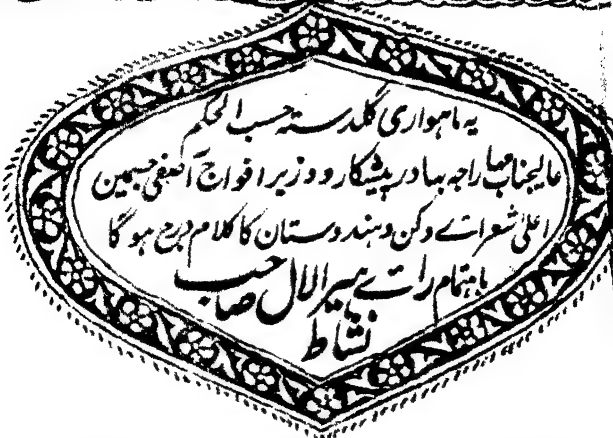 یہ ماہواری گلدستہ حسب الحکم
عالیجناب مہاراجہ بہادر پیشکار و وزیر افواج آصفی جسمین
اعلیٰ شعرائے دکن و ہندوستان کا کلام درج ہوگا
باہتمام رائے ہیرالال صاحب
نشاط